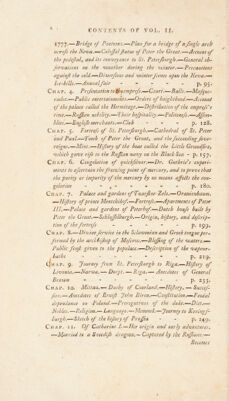 CONTENTS OF VOL. II.
1777.—Bridge of Pontoons.—Plan for a bridge of a single arch
across the Neva.—Colossal statue of Peter the Great.—Account of
the pedestal, and its conveyance to St. Petersburgh.—General ob-
servations on the weather during the winter.—Precautions
against the cold.—Diversions and winter scenes upon the Neva.—
Ice-hills.—Annual fair - - - - p. 95.
CHAP. 4. Presentation to the empress.—Court.—Balls.—Masque-
rades.—Public entertainments.—Orders of knighthood.—Account
of the palace called the Hermitage.—Distribution of the empress's
time.—Russian nobility.—Their hospitality.—Politeness.—Assem-
blies.—English merchants.—Clubs - - p. 128.
CHAP. 5. Fortress of St. Petersburgh.—Cathedral of St. Peter
and Paul.—Tomb of Peter the Great, and the succeeding sove-
reigns.—Mint.—History of the boat called the Little Grandsire,
which gave rise to the Russian navy on the Black Sea - p. 157.
CHAP. 6. Congelation of quicksilver.—Dr. Guthrie's experi-
ments to ascertain the freezing point of mercury, and to prove that
the purity or impurity of the mercury by no means affects the con-
gelation - - - - p. 180.
CHAP. 7. Palace and gardens of Tzarskoe Zelo.—Oranienbaum.
—History of prince Mentchikof.—Fortress.—Apartments of Peter
III.—Palace and gardens of Peterhof.—Dutch house built by
Peter the Great.—Schlusselburgh.—Origin, history, and descrip-
tion of the fortress - - - p. 193.
CHAP. 8.—Divine service in the Sclavonian and Greek tongues per-
formed by the archbishop of Moscow.—Blessing of the waters.—
Public feast given to the populace.—Description of the vapour-
baths - - - - p. 219.
CHAP. 9. Journey from St. Petersburgh to Riga.—History of
Livonia.—Narva.—Dorpt.—Riga.—Anecdotes of General
Brown - - - - p. 233.
CHAP. 10. Mittau.—Duchy of Courland.—History.—Succes-
sion.—Anecdotes of Ernest John Biren.—Constitution.—Feudal
dependence to Poland.—Prerogatives of the duke.—Diet.—
Nobles.—Religion.—Language.—Memmel.—Journey to Konings-
burgh.—Sketch of the history of Prussia - - p. 247.
CHAP. 11. Of Catharine I.—Her origin and early adventures.
—Married to a Swedish dragoon.—Captured by the Russians.—
Becomes